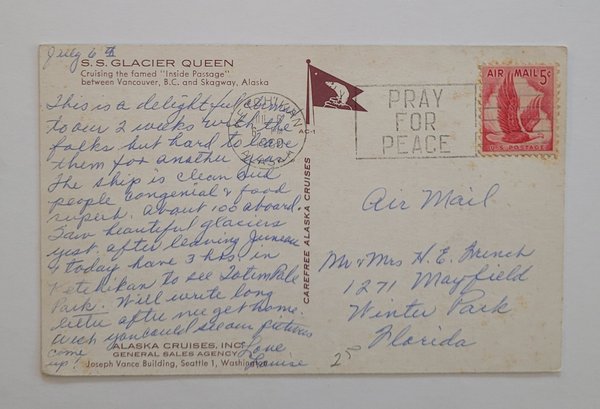 July 6th
S.S. GLACIER QUEEN
Cruising the famed "Inside Passage"
between Vancouver, B.C. and Skagway, Alaska
This is a delightful climax
to our 2 weeks with the
folks but hard to leave
them for another year.
The ship is clean and
people congenial & food
superb. About 100 aboard.
Saw beautiful glaciers
yest. after leaving Juneau
& today have 3 hrs. in
Ketchikan to see Totem Pole
Park. Will write long
letter after we get home.
Wish you could see our pictures
come
up! Love
Louise
ALASKA CRUISES, INC.
GENERAL SALES AGENCY
Joseph Vance Building, Seattle 1, Washington
AC-1
CAREFREE ALASKA CRUISES
KETCHIKAN
PRAY
FOR
PEACE
AIR MAIL 5¢
U.S. POSTAGE
Air Mail
Mr & Mrs H. E. French
1271 Mayfield
Winter Park
Florida